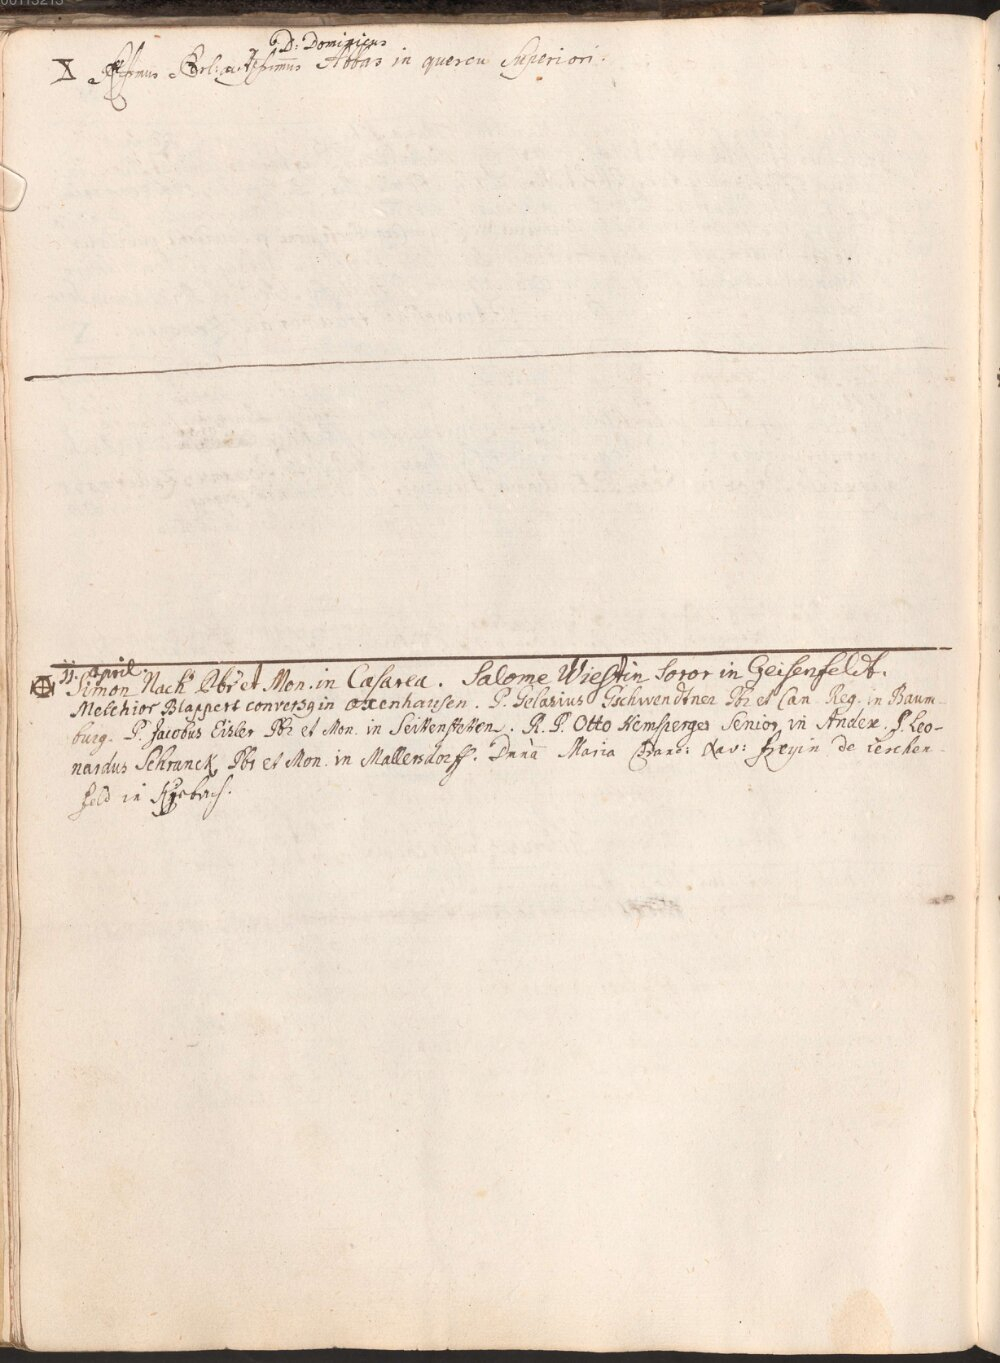 D: Dominicus
X Abbas in quercu Superiori.
11. April.
Simon Nach Pbr et Mon. in Cæsarea. Salome Wiestin Soror in Geisenfeldt.
Melchior Blappert convers9 in oxenhausen. P. Gelasius Gschwendtner Pbr et Can. Reg. in Baum-
burg. P. Jacobus Eisler Pbr et Mon. in Seittenstetten. R. P. Otto Kemsperger Senior in Andex. P. Leo-
nardus Schranck Pbr et Mon. in Mallersdorff. Dnna Maria Xav: Freyin de Lerchen-
feld in